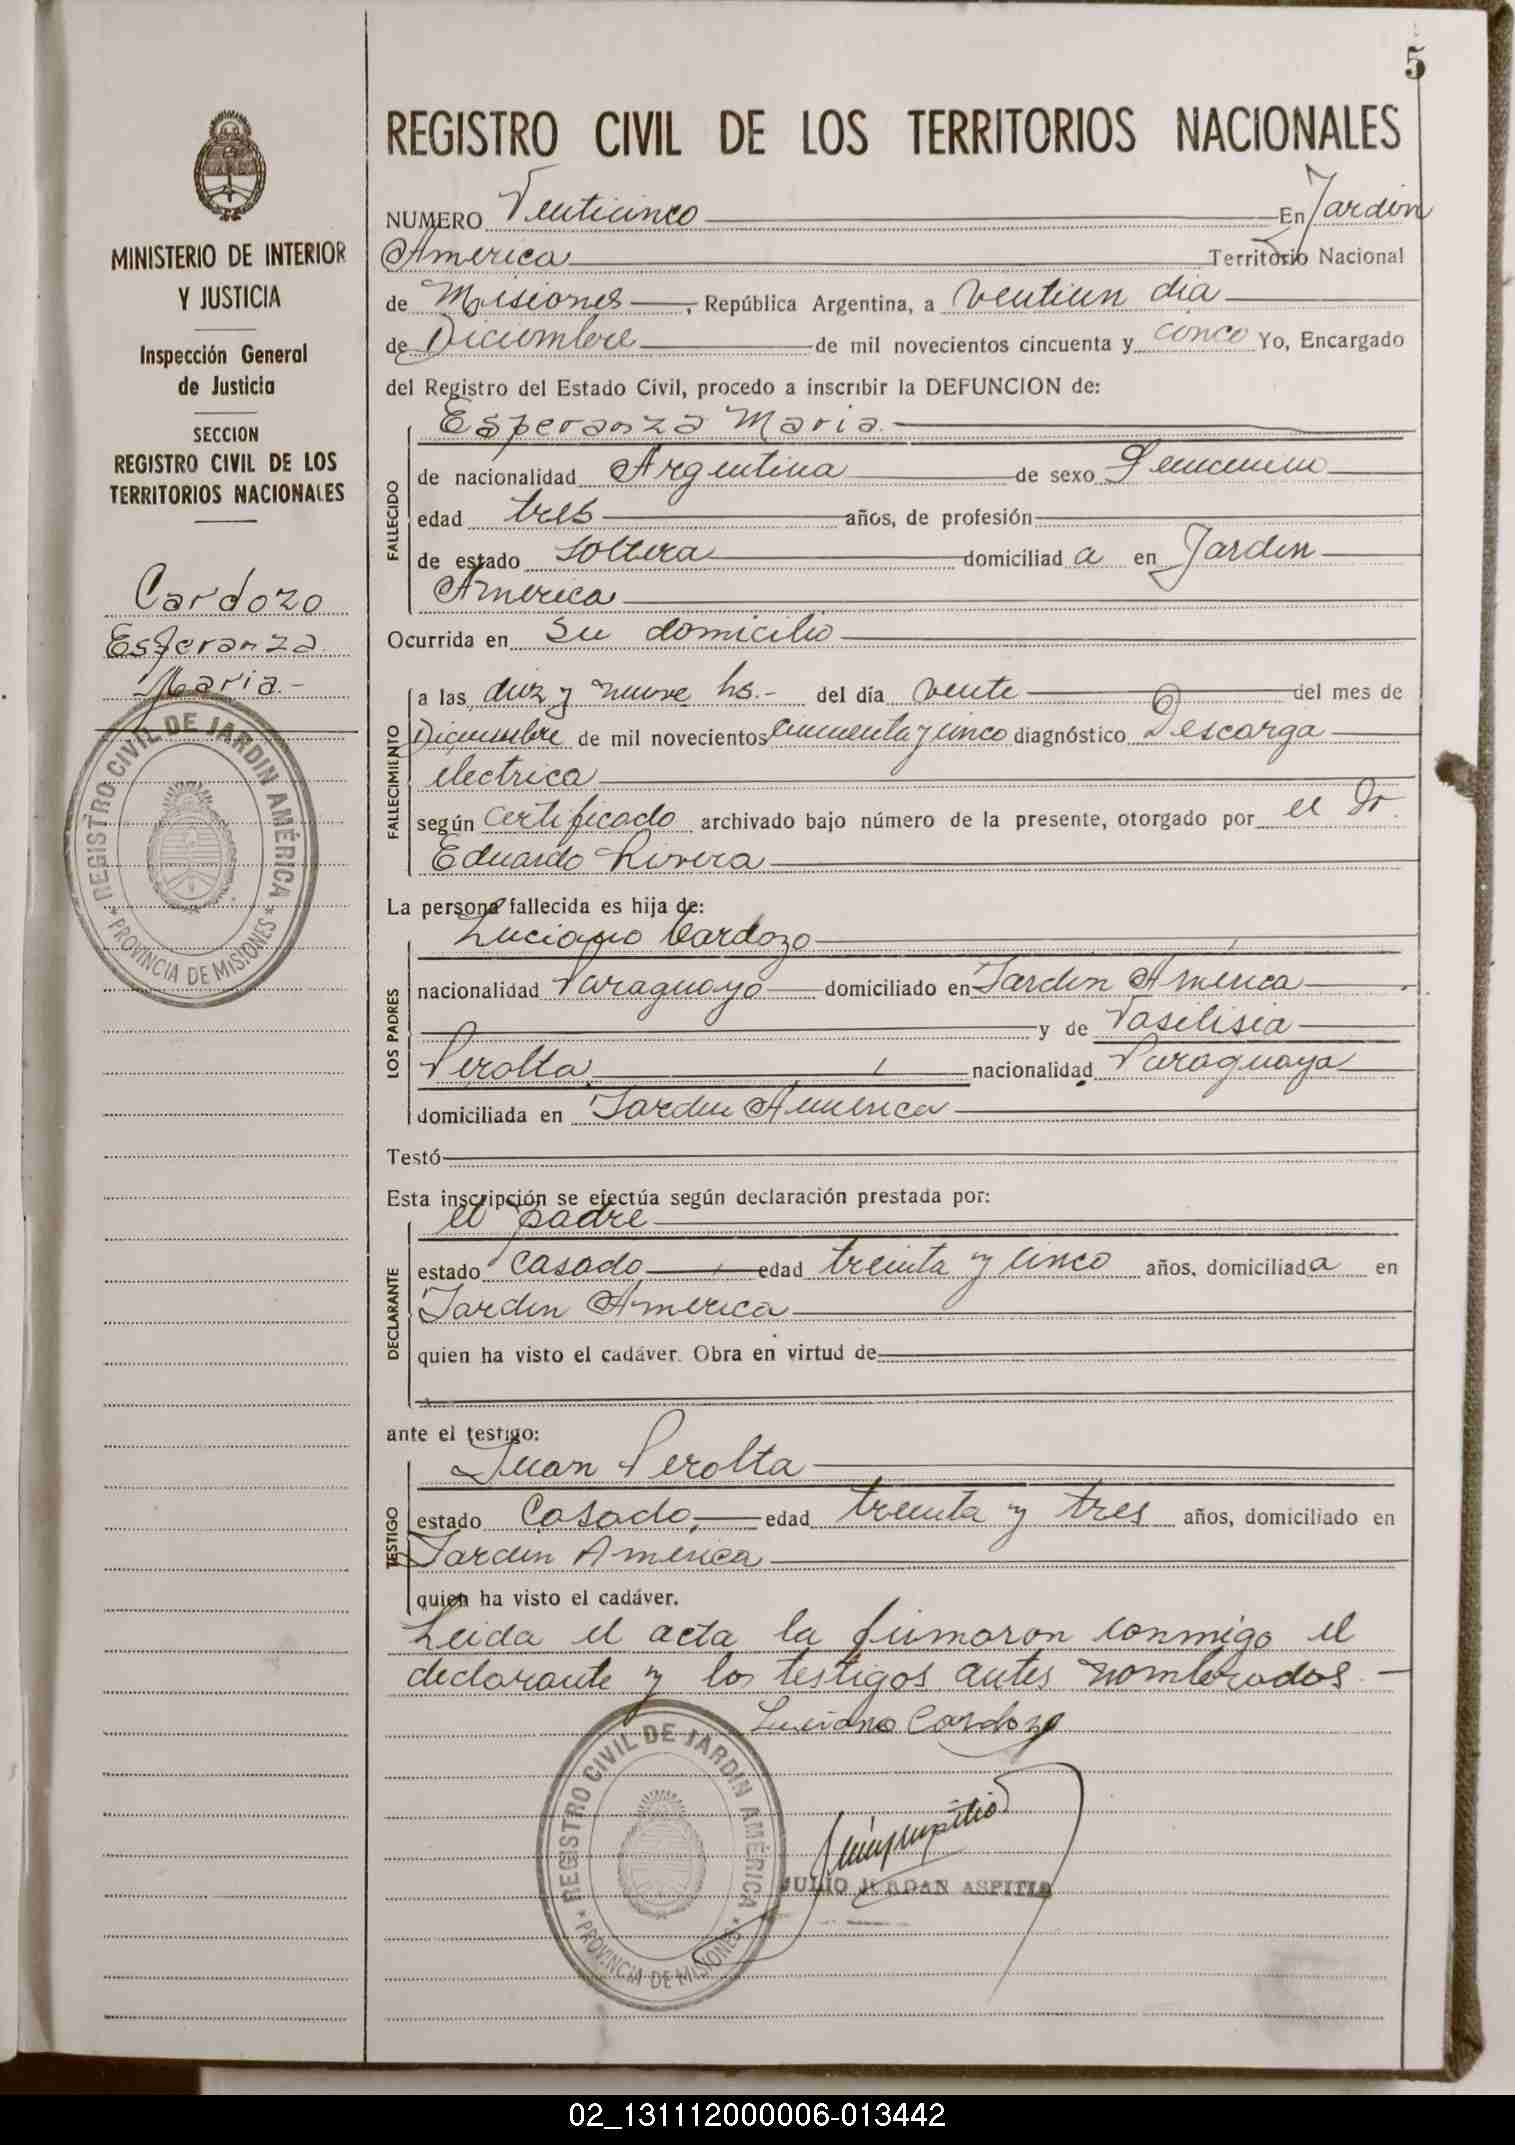 5
MINISTERIO DE INTERIOR
Y JUSTICIA
Inspección General
de Justicia
SECCION
REGISTRO CIVIL DE LOS
TERRITORIOS NACIONALES
Cardozo
Esperanza
Maria.-
REGISTRO CIVIL DE JARDIN AMÉRICA
* PROVINCIA DE MISIONES *
REGISTRO CIVIL DE LOS TERRITORIOS NACIONALES
NUMERO Venticinco En Jardin
America Territorio Nacional
de Misiones, República Argentina, a ventiun dia
de Diciembre de mil novecientos cincuenta y cinco Yo, Encargado
del Registro del Estado Civil, procedo a inscribir la DEFUNCION de:
Esperanza Maria.
FALLECIDO
de nacionalidad Argentina de sexo Femenino
edad tres años, de profesión
de estado soltera domiciliad a en Jardin
America
Ocurrida en su domicilio
FALLECIMIENTO
a las diez y nueve hs.- del día veinte del mes de
Diciembre de mil novecientos cincuenta y cinco diagnóstico Descarga
electrica
según certificado archivado bajo número de la presente, otorgado por el Dr.
Eduardo Rivera
La persona fallecida es hija de:
Luciano Cardozo
LOS PADRES
nacionalidad Paraguayo domiciliado en Jardin América
y de Vasilisia
Peralta nacionalidad Paraguaya
domiciliada en Jardin America
Testó
Esta inscripción se efectúa según declaración prestada por:
el padre
DECLARANTE
estado casado edad treinta y cinco años, domiciliada en
Jardin America
quien ha visto el cadáver. Obra en virtud de
ante el testigo:
Juan Peralta
TESTIGO
estado Casado, edad treinta y tres años, domiciliado en
Jardin America
quien ha visto el cadáver.
Leida el acta la firmaron conmigo el
declarante y los testigos antes nombrados.-
Luciano Cardozo
REGISTRO CIVIL DE JARDIN AMÉRICA
* PROVINCIA DE MISIONES *
JULIO JORDAN ASPITIA
02_131112000006-013442